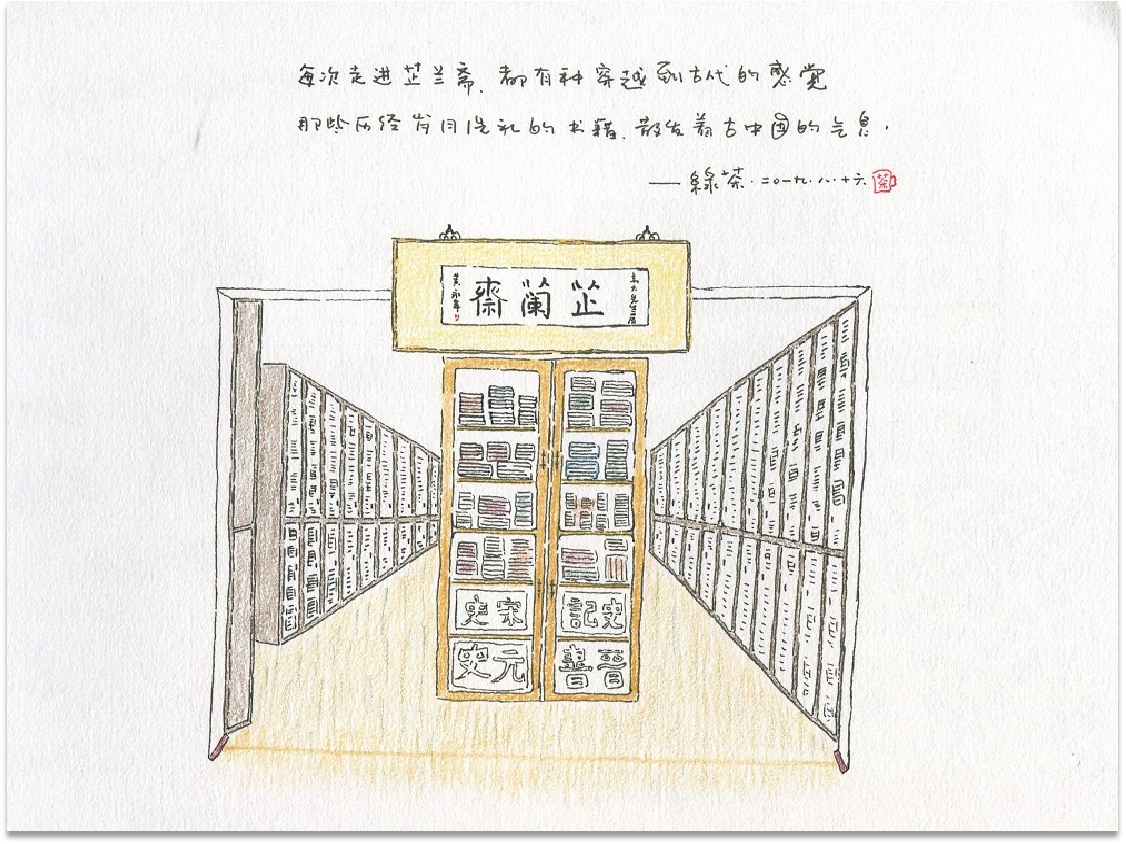 每次走进芷兰斋、都有种穿越到古代的感觉
那些历经岁月洗礼的书籍、散发着古中国的气息.
—— 綠茶·二〇一九·八·十六
茶
芷蘭齋
黄永年
宋史
史記
元史
晉書